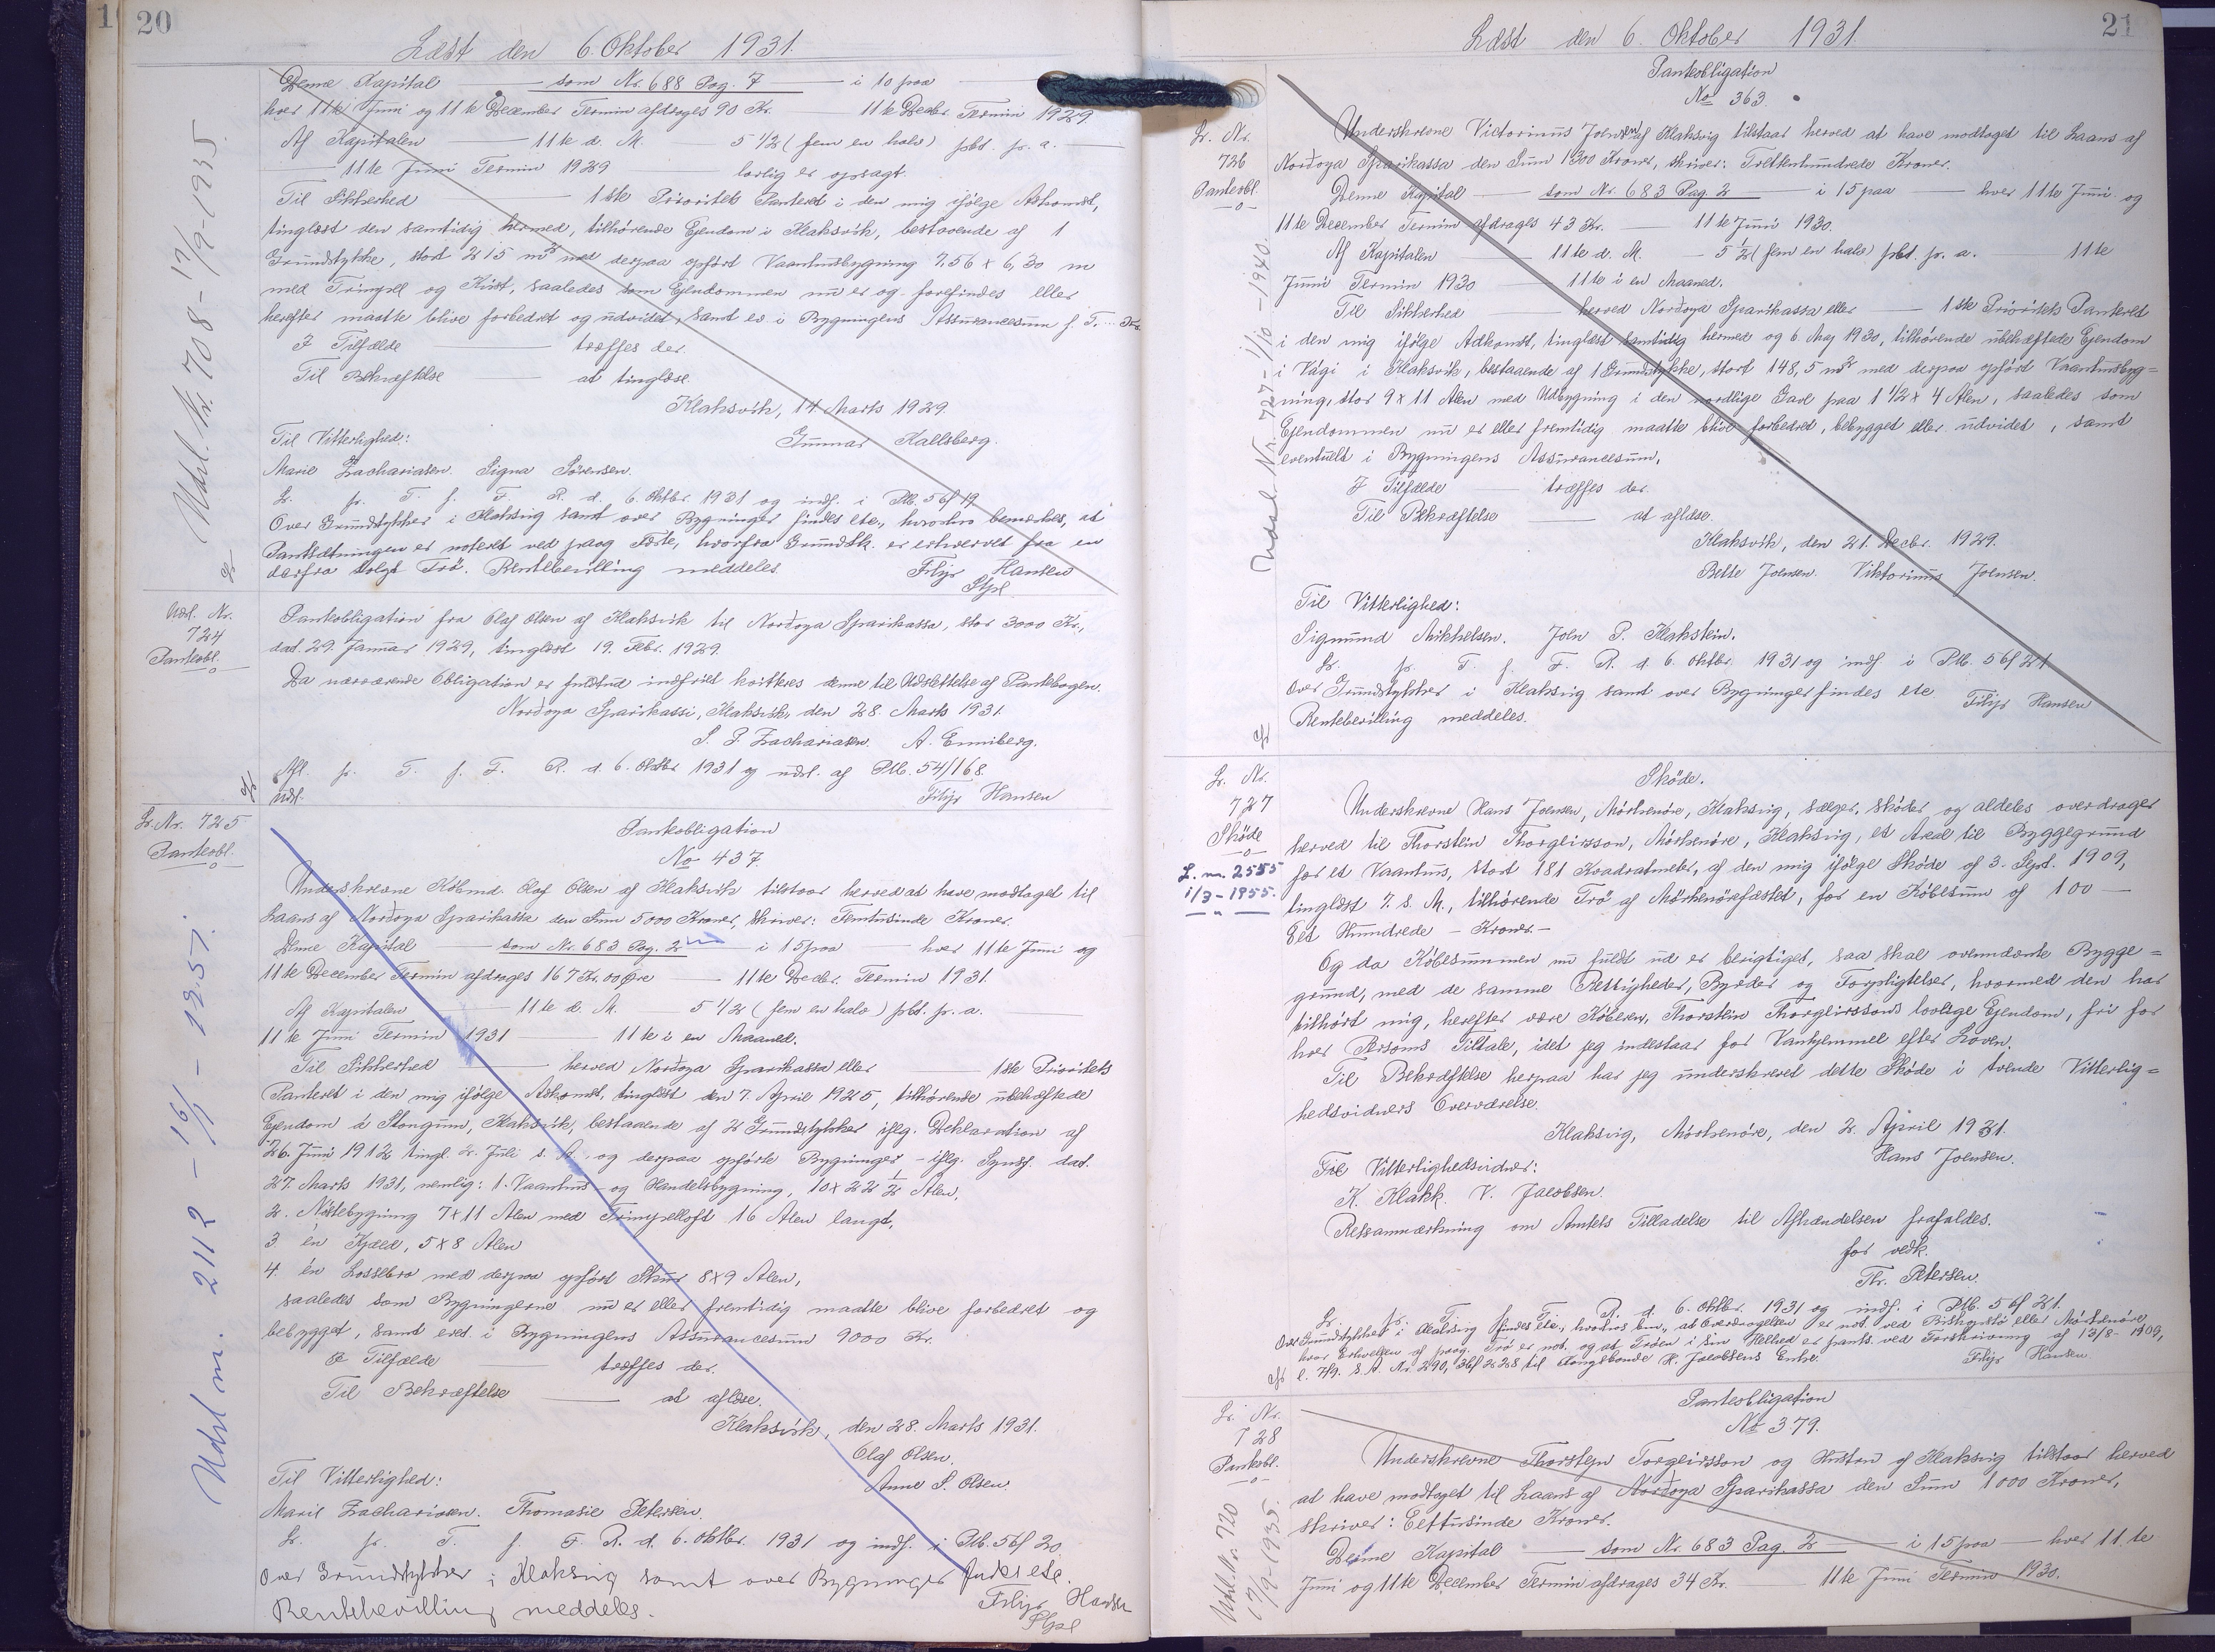 20
Læst den 6. Oktober 1931.
Denne Kapital — som Nr. 688 Pag. 7 — i 10 paa
hver 11te Juni og 11te December Termin afdrages 90 Kr. — 11te Decbr. Termin 1929
Af Kapitalen — 11te d. M. 5 1/2 (fem en halv) pCt. p. a. —
— 11te Juni Termin 1929 — lovlig er opsagt.
Til Sikkerhed — 1ste Prioritets Panteret i den mig ifølge Adkomst,
tinglæst den samtidig hermed, tilhørende Ejendom i Klaksvik, bestaaende af 1
Grundstykke, stort 215 m2 med derpaa opført Vaaningsbygning 7,56 x 6,30 m
med Trimpel og Kvist, saaledes som Ejendommen nu er og forefindes eller
herefter maatte blive forbedret og udvidet, samt ev i Bygningens Assurancesum f. T. ... Kr.
I Tilfælde — træffes der.
Til Bekræftelse — at tinglæse.
Klaksvik, 14 Marts 1929.
Til Vitterlighed: Gunnar Kallsberg.
Marie Zachariasen. Signa Sørensen.
L. p. T. f. F. R. d. 6. Oktbr. 1931 og indf. i Ptb. 56f 19
Over Grundstykker i Klaksvig samt over Bygninger findes etc., hvorhos bemærkes, at
Pantsætningen er noteret ved paag. Fæste, hvorfra Grundstk. er erhvervet fra en
derfra solgt Trö. Rentebevilling meddeles. Filip Hansen
Stpl.
Udsl. Nr. 708 - 17/9-1935.
Udsl. Nr.
724
Panteobl.
Panteobligation fra Olaf Olsen af Klaksvik til Nordoya Sparikassa, stor 3000 Kr.,
dat. 29. Januar 1929, tinglæst 19. Febr. 1929.
Da nærværende Obligation er fuldtud indfriet kvitteres denne til Udslettelse af Pantebogen.
Nordoya Sparikassi, Klaksvik, den 28. Marts 1931.
S. P. Zachariasen. A. Enniberg.
Afl. p. T. f. F. R. d. 6. Oktbr 1931 og udsl. af Ptb. 54/168
Udsl. Filip Hansen
L. Nr. 725
Panteobl.
Panteobligation
No 437.
Underskrevne Købmd. Olaf Olsen af Klaksvik tilstaar herved at have modtaget til
Laans af Nordoya Sparikassa den Sum 5000 Kroner, skriver: Femtusinde Kroner.
Denne Kapital — som Nr. 683 Pag. 2 — i 15 paa — hver 11te Juni og
11te December Termin afdrages 167 Kr. 00 Øre — 11te Decbr. Termin 1931.
Af Kapitalen — 11te d. M. — 5 1/2 (fem en halv) pCt. p. a.
11te Juni Termin 1931 — 11te i en Maaned.
Til Sikkerhed — herved Nordoya Sparikassa eller — 1ste Prioritets
Panteret i den mig ifølge Adkomst, tinglæst den 7. April 1925, tilhørende ubehæftede
Ejendom á Stongum, Klaksvik, bestaaende af 2 Grundstykker iflg. Deklaration af
26. Juni 1912 tingl. 2. Juli s. A. og derpaa opførte Bygninger - iflg. Synsf. dat.
27. Marts 1931, nemlig: 1. Vaanhus og Handelsbygning, 10 x 22 1/2 Alen,
2. Nöstebygning 7x11 Alen med Trimpelloft 16 Alen langt,
3. en Kjæld, 5x8 Alen
4. en Lossebro med derpaa opført Skur 8x9 Alen,
saaledes som Bygningerne nu er eller fremtidig maatte blive forbedret og
bebygget, samt evt. i Bygningens Assurancesum 9000 Kr.
I Tilfælde — træffes der.
Til Bekræftelse — at aflæse.
Klaksvik, den 28. Marts 1931.
Olaf Olsen.
Til Vitterlighed: Anne S. Olsen.
Marie Zachariasen. Thomasie Petersen.
L. p. T. f. F. R. d. 6. Oktbr. 1931 og indf. i Ptb. 56f 20
Over Grundstykker i Klaksvig samt over Bygninger findes etc.
Rentebevilling meddeles. Filip Hansen
Stpl
Udsl. nr. 2112 - 16/1 - 1951.
21
Læst den 6. Oktober 1931.
Panteobligation
No 363.
L. Nr.
726
Panteobl.
Underskrevne Victorinus Joensen af Klaksvig tilstaar herved at have modtaget til Laans af
Nordoya Sparikassa den Sum 1300 Kroner, skriver: Trettenhundrede Kroner.
Denne Kapital — som Nr. 683 Pag. 2 — i 15 paa — hver 11te Juni og
11te December Termin afdrages 43 Kr. — 11te Juni 1930.
Af Kapitalen — 11te d. M. — 5 1/2 (fem en halv) pCt. p. a. — 11te
Juni Termin 1930 — 11te i en Maaned.
Til Sikkerhed — herved Nordoya Sparikassa eller — 1ste Prioritets Panteret
i den mig ifølge Adkomst, tinglæst samtidig hermed og 6. Maj 1930, tilhørende ubehæftede Ejendom
i Vági i Klaksvik, bestaaende af 1 Grundstykke, stort 148,5 m2 med derpaa opført Vaanhusbyg=
ning, stor 9x11 Alen med Udbygning i den nordlige Gavl paa 1 1/2 x 4 Alen, saaledes som
Ejendommen nu er eller fremtidig maatte blive forbedret, bebygget eller udvidet, samt
eventuelt i Bygningens Assurancesum,
I Tilfælde — træffes der.
Til Bekræftelse — at aflæse.
Klaksvik, den 21. Decbr. 1929.
Bette Joensen. Viktorinus Joensen.
Til Vitterlighed:
Sigmund Mikkelsen. Joen P. Klakstein.
L. p. T. f. F. R. d. 6. Oktbr. 1931 og indf. i Ptb. 56f 21
Over Grundstykker i Klaksvig samt over Bygninger findes etc
Rentebevilling meddeles. Filip Hansen
Udsl. Nr. 727 - 1/10 - 1940.
L. Nr.
727
Sköde
L. nr. 2555
1/3-1955.
Sköde.
Underskrevne Hans Joensen, Mörkenöre, Klaksvig, sælger, sköder og aldeles overdrager
herved til Thorstein Thorgeirsson, Mörkenöre, Klaksvig, et Areal til Byggegrund
for et Vaanhus, stort 181 Kvadratmeter, af den mig ifølge Sköde af 3. Sept. 1909,
tinglæst 7. s. M., tilhørende Trö af Mörkenörefæstet, for en Købesum af 100 —
Eet Hundrede — Kroner.—
Og da Købesummen nu fuldt ud er berigtiget, saa skal ovennævnte Bygge=
grund, med de samme Rettigheder, Byrder og Forpligtelser, hvormed den har
tilhört mig, herefter være Köberen, Thorstein Thorgeirssons lovlige Ejendom, fri for
hver Persons Tiltale, idet jeg indestaar for Vanhjemmel efter Loven.
Til Bekræftelse herpaa har jeg underskrevet dette Sköde i tvende Vitterlig=
hedsvidners Overværelse.
Klaksvig, Mörkenöre, den 2. April 1931.
Til Vitterlighedsvidner: Hans Joensen.
K. Klakk. V. Jacobsen.
Retsanmærkning om Amtets Tilladelse til Afhændelsen frafaldes.
for vedk.
Th. Petersen.
L. p. T. f. F. R. d. 6. Oktbr. 1931 og indf. i Ptb. 56f 21.
Over Grundstykker i Klaksvig findes etc., hvorhos bem., at Overdragelsen er not. ved Biskupstö eller Mörkenöre,
hvor Erhvelsen af paag. Trö er not. og at Tröen i sin Helhed er pants. ved Forskrivning af 13/8-1909,
l. 7/9. s. A. Nr. 290, 36f 228 til Kongsbonde H. Jacobsens Enke. Filip Hansen.
L. Nr.
728
Panteobl.
Panteobligation
No 379.
Underskrevne Thorstejn Torgeirsson og Hustru af Klaksvig tilstaar herved
at have modtaget til Laans af Nordoya Sparikassa den Sum 1000 Kroner,
skriver: Eettusinde Kroner.
Denne Kapital — som Nr. 683 Pag. 2 — i 15 paa — hver 11te
Juni og 11te December Termin afdrages 34 Kr. — 11te Juni Termin 1930.
Udsl. Nr. 720
17/9-1935.